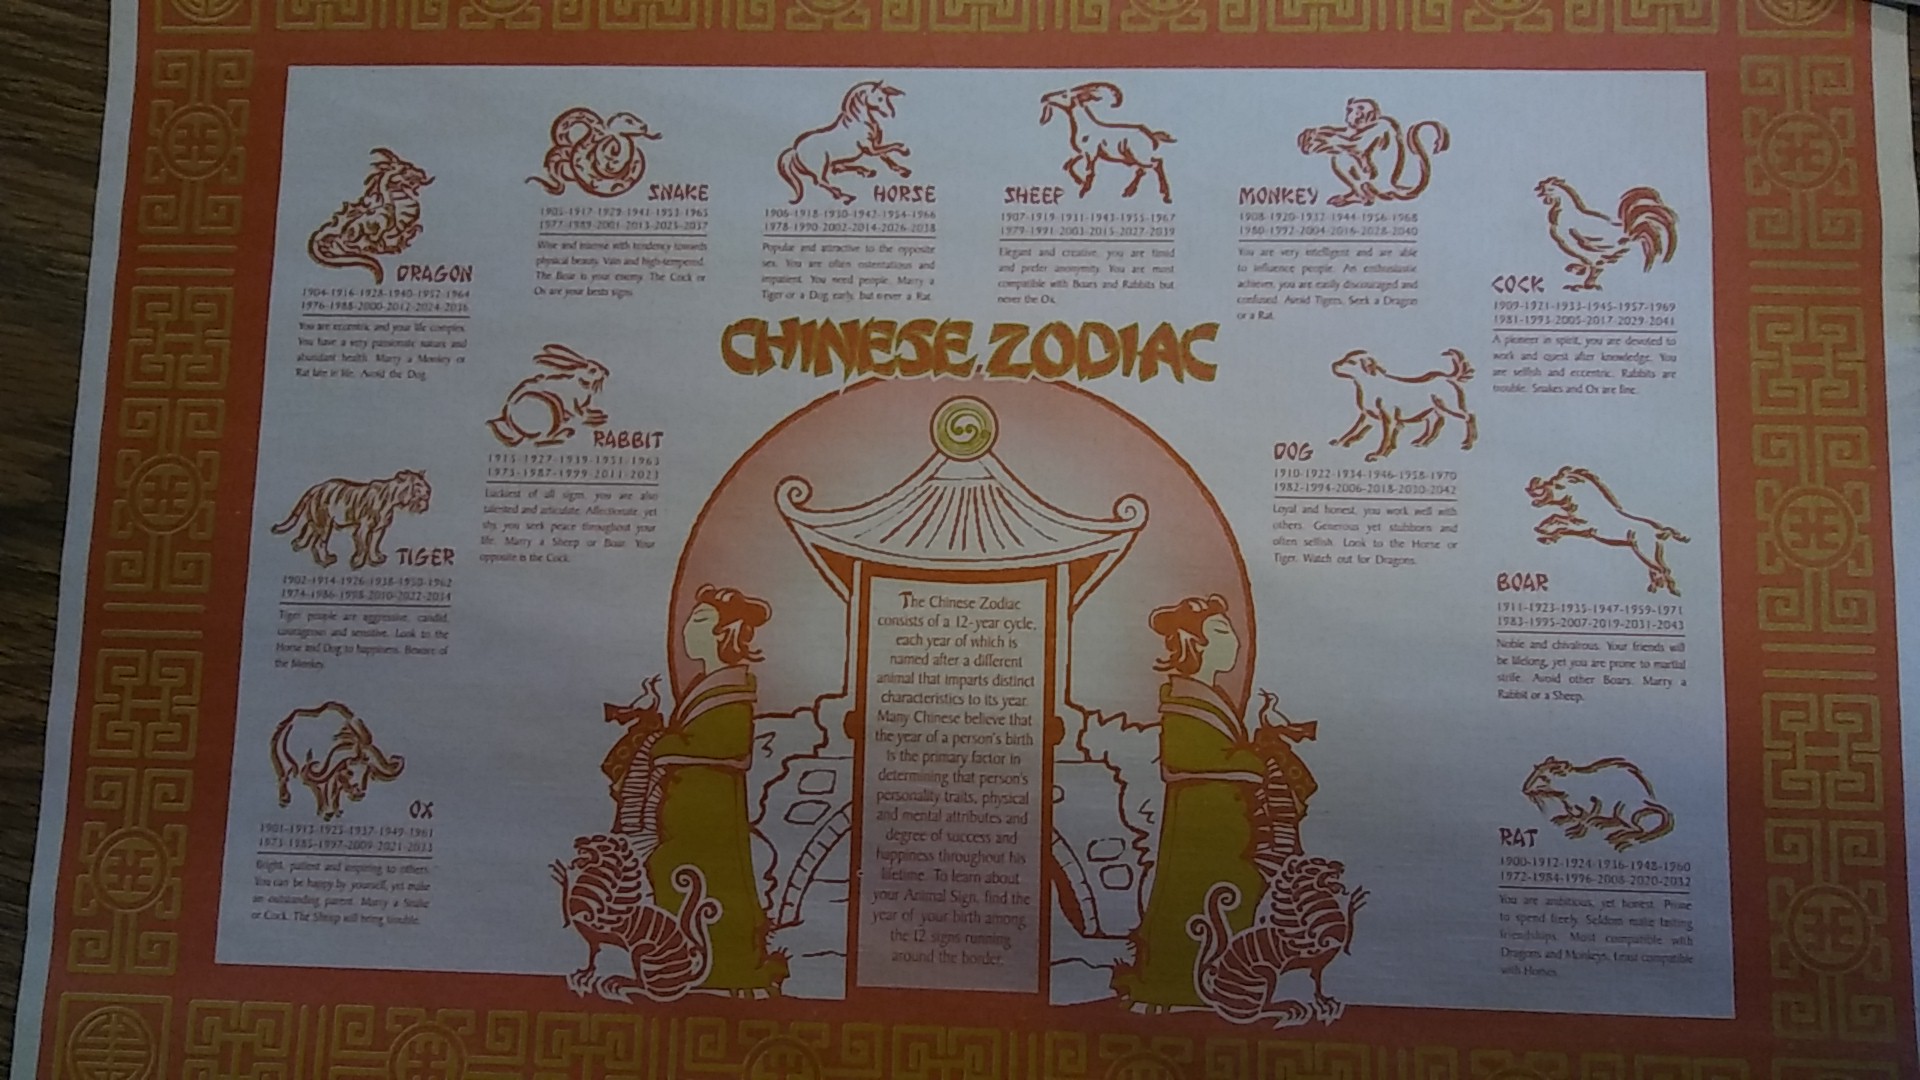 DRAGON
1904-1916-1928-1940-1952-1964
1976-1988-2000-2012-2024-2036
You are eccentric and your life complex.
You have a very passionate nature and
abundant health. Marry a Monkey or
Rat late in life. Avoid the Dog.
SNAKE
1905-1917-1929-1941-1953-1965
1977-1989-2001-2013-2025-2037
Wise and intense with tendency towards
physical beauty. Vain and high-tempered.
The Boar is your enemy. The Cock or
Ox are your bests signs.
HORSE
1906-1918-1930-1942-1954-1966
1978-1990-2002-2014-2026-2038
Popular and attractive to the opposite
sex. You are often ostentatious and
impatient. You need people. Marry a
Tiger or a Dog early, but never a Rat.
SHEEP
1907-1919-1931-1943-1955-1967
1979-1991-2003-2015-2027-2039
Elegant and creative, you are timid
and prefer anonymity. You are most
compatible with Boars and Rabbits but
never the Ox.
MONKEY
1908-1920-1932-1944-1956-1968
1980-1992-2004-2016-2028-2040
You are very intelligent and are able
to influence people. An enthusiastic
achiever, you are easily discouraged and
confused. Avoid Tigers. Seek a Dragon
or a Rat.
COCK
1909-1921-1933-1945-1957-1969
1981-1993-2005-2017-2029-2041
A pioneer in spirit, you are devoted to
work and quest after knowledge. You
are selfish and eccentric. Rabbits are
trouble. Snakes and Ox are fine.
CHINESE ZODIAC
RABBIT
1915-1927-1939-1951-1963
1975-1987-1999-2011-2023
Luckiest of all signs, you are also
talented and articulate. Affectionate, yet
shy, you seek peace throughout your
life. Marry a Sheep or Boar. Your
opposite is the Cock.
DOG
1910-1922-1934-1946-1958-1970
1982-1994-2006-2018-2030-2042
Loyal and honest, you work well with
others. Generous yet stubborn and
often selfish. Look to the Horse or
Tiger. Watch out for Dragons.
TIGER
1902-1914-1926-1938-1950-1962
1974-1986-1998-2010-2022-2034
Tiger people are aggressive, candid,
courageous and sensitive. Look to the
Horse and Dog to happiness. Beware of
the Monkey.
BOAR
1911-1923-1935-1947-1959-1971
1983-1995-2007-2019-2031-2043
Noble and chivalrous. Your friends will
be lifelong, yet you are prone to marital
strife. Avoid other Boars. Marry a
Rabbit or a Sheep.
The Chinese Zodiac
consists of a 12-year cycle,
each year of which is
named after a different
animal that imparts distinct
characteristics to its year.
Many Chinese believe that
the year of a person's birth
is the primary factor in
determining that person's
personality traits, physical
and mental attributes and
degree of success and
happiness throughout his
lifetime. To learn about
your Animal Sign, find the
year of your birth among
the 12 signs running
around the border.
OX
1901-1913-1925-1937-1949-1961
1973-1985-1997-2009-2021-2033
Bright, patient and inspiring to others.
You can be happy by yourself, yet make
an outstanding parent. Marry a Snake
or Cock. The Sheep will bring trouble.
RAT
1900-1912-1924-1936-1948-1960
1972-1984-1996-2008-2020-2032
You are ambitious, yet honest. Prone
to spend freely. Seldom make lasting
friendships. Most compatible with
Dragons and Monkeys. Least compatible
with Horses.